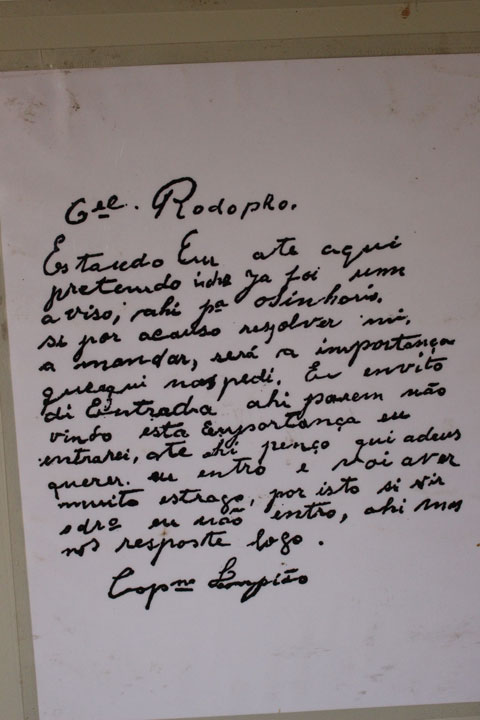 Cel. Rodopho.
Estando Eu até aqui
pretendo drº Ja foi um
aviso, ahi pª osinhoris,
si por acauso rezolver mi,
a mandar, será a importança
que aqui nos pedi, Eu envito
di Entrada ahi porem não
vindo esta Emportança eu
entrarei, até ahi penço qui adeus
querer. eu entro e vai aver
muito estrago, por isto si vir
odrº eu não entro, ahi mas
nos resposte logo.
Capm Lampião